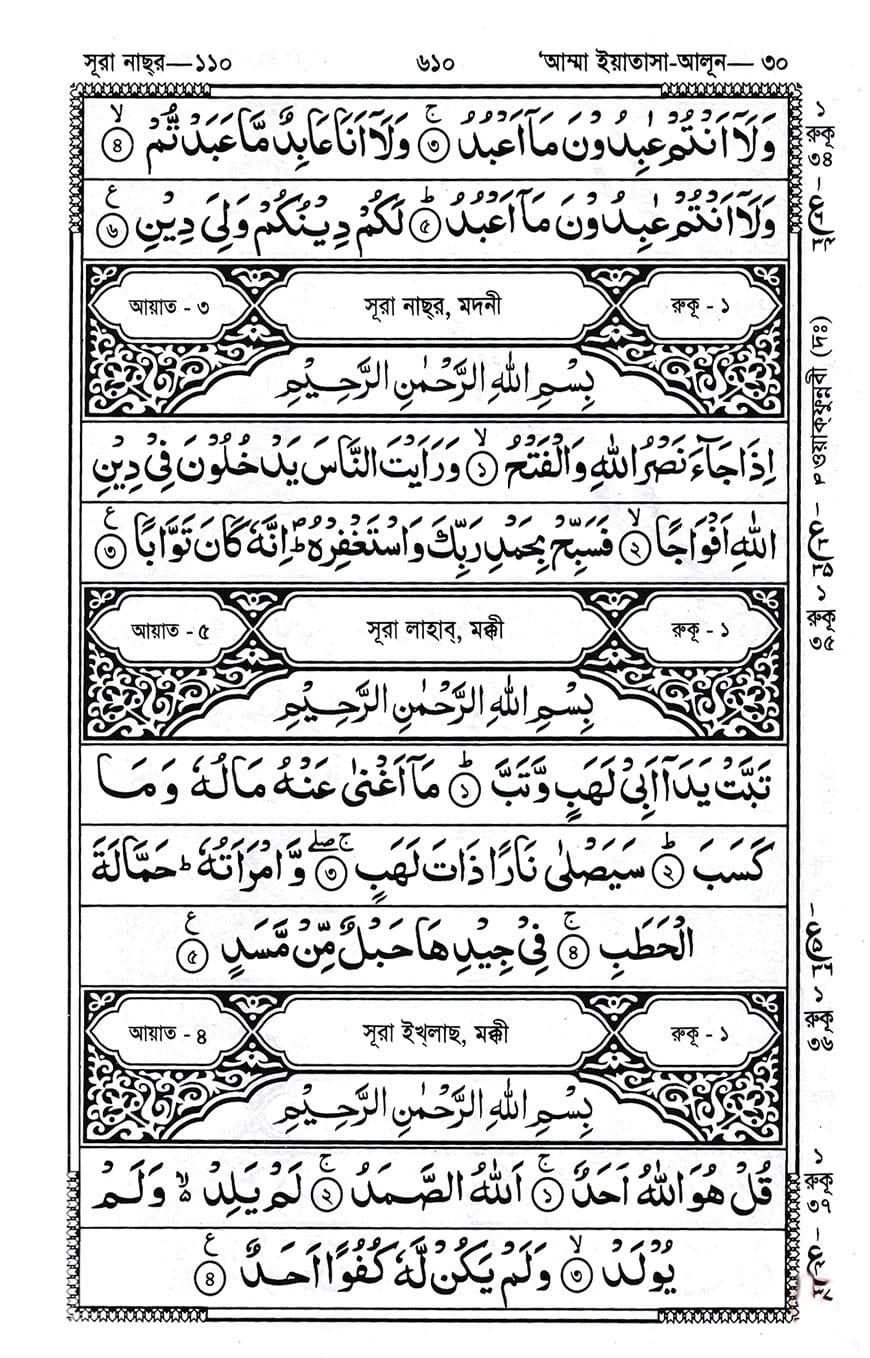 সূরা নাছ্‌র—১১০ ৬১০ ‘আম্মা ইয়াতাসা-আলূন— ৩০
وَلَآ اَنْتُمْ عٰبِدُوْنَ مَآ اَعْبُدُ ۚ‏﴿৩﴾ وَلَآ اَنَا عَابِدٌ مَّا عَبَدْتُّمْ ۙ‏﴿৪﴾
وَلَآ اَنْتُمْ عٰبِدُوْنَ مَآ اَعْبُدُ ؕ‏﴿৫﴾ لَكُمْ دِيْنُكُمْ وَلِىَ دِيْنِ ع‏﴿৬﴾
আয়াত - ৩ সূরা নাছ্‌র, মদনী রুকূ - ১
بِسْمِ اللهِ الرَّحْمٰنِ الرَّحِيْمِ
اِذَا جَآءَ نَصْرُ اللهِ وَالْفَتْحُ ۙ‏﴿১﴾ وَرَاَيْتَ النَّاسَ يَدْخُلُوْنَ فِىْ دِيْنِ
اللهِ اَفْوَاجًا ۙ‏﴿২﴾ فَسَبِّحْ بِحَمْدِ رَبِّكَ وَاسْتَغْفِرْهُ ؕ اِنَّهٗ كَانَ تَوَّابًا ع‏﴿৩﴾
আয়াত - ৫ সূরা লাহাব্, মক্কী রুকূ - ১
بِسْمِ اللهِ الرَّحْمٰنِ الرَّحِيْمِ
تَبَّتْ يَدَآ اَبِىْ لَهَبٍ وَّتَبَّ ؕ‏﴿১﴾ مَآ اَغْنٰى عَنْهُ مَالُهٗ وَمَا
كَسَبَ ؕ‏﴿২﴾ سَيَصْلٰى نَارًا ذَاتَ لَهَبٍ ۚ ۖ‏﴿৩﴾ وَّامْرَاَتُهٗ ؕ حَمَّالَةَ
الْحَطَبِ ۚ‏﴿৪﴾ فِىْ جِيْدِهَا حَبْلٌ مِّنْ مَّسَدٍ ع‏﴿৫﴾
আয়াত - ৪ সূরা ইখ্‌লাছ, মক্কী রুকূ - ১
بِسْمِ اللهِ الرَّحْمٰنِ الرَّحِيْمِ
قُلْ هُوَ اللهُ اَحَدٌ ۚ‏﴿১﴾ اَللهُ الصَّمَدُ ۚ‏﴿২﴾ لَمْ يَلِدْ ۙ وَلَمْ
يُوْلَدْ ۙ‏﴿৩﴾ وَلَمْ يَكُنْ لَّهٗ كُفُوًا اَحَدٌ ع‏﴿৪﴾
১
রুকূ
৩৪
ওয়াক্‌ফুন্নবী (দঃ)
১
রুকূ
৩৫
১
রুকূ
৩৬
১
রুকূ
৩৭